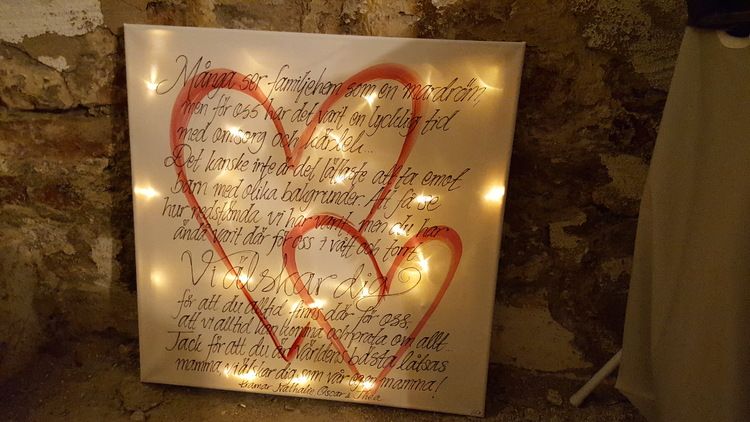 Många ser familjehem som en mardröm,
men för oss har det varit en lycklig tid
med omsorg och kärlek...
Det kanske inte är det lättaste att ta emot
barn med olika bakgrunder. Att få se
hur nedstämda vi har varit, men du har
ändå varit där för oss i vått och torrt.
Vi älskar dig
för att du alltid finns där för oss,
att vi alltid kan komma och prata om allt...
Tack för att du är världens bästa låtsas
mamma, vi älskar dig som vår egen mamma!
kramar Nathalie Oscar & Thea